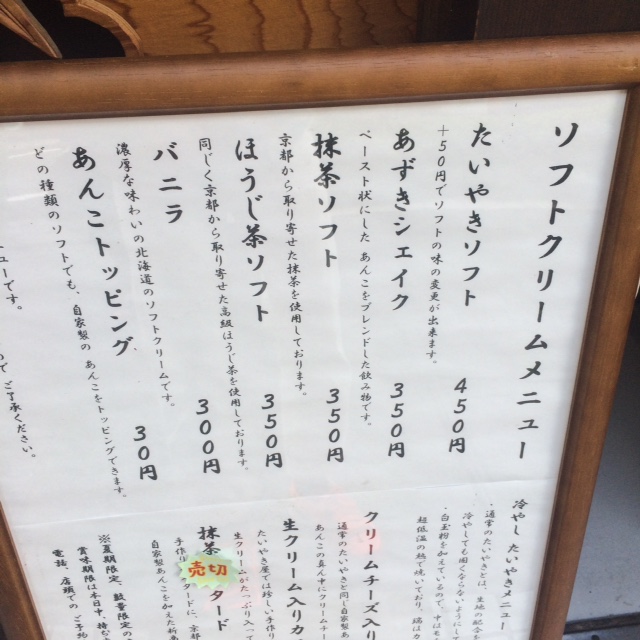 ソフトクリームメニュー
たいやきソフト 450円
+50円でソフトの味の変更が出来ます。
あずきシェイク 350円
ペースト状にした あんこをブレンドした飲み物です。
抹茶ソフト 350円
京都から取り寄せた抹茶を使用しております。
ほうじ茶ソフト 350円
同じく京都から取り寄せた高級ほうじ茶を使用しております。
バニラ 300円
濃厚な味わいの北海道のソフトクリームです。
あんこトッピング 30円
どの種類のソフトでも、自家製の あんこをトッピングできます。
ューです。
ご了承ください。
冷やし たいやきメニュー
・通常のたいやきとは、生地の配合
冷やしても固くならないように
・白玉粉を加えているので、中はモ
超低温の熱で焼いており、端はカ
クリームチーズ入り
通常のたいやきと同じ自家製あ
あんこの真ん中にクリームチー
生クリーム入りカ
たいやき屋では珍しい手作り
生クリームがたっぷり入って
抹茶
売切
タード
手作り
タードに、京都
自家製あんこも加えた新食
※夏期限定、数量限定の
賞味期限は本日中。持ち
電話、店頭でのご予